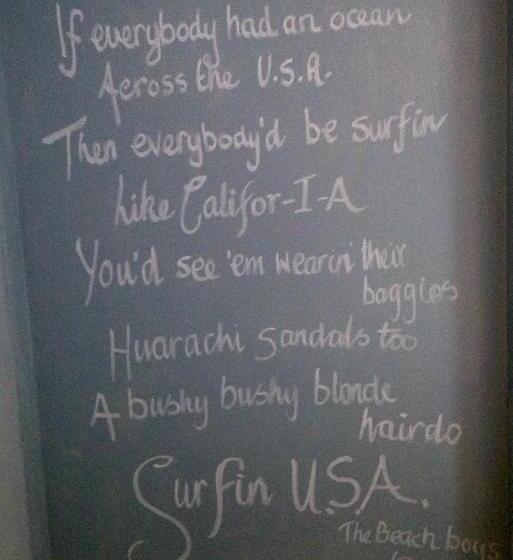 If everybody had an ocean
Across the U.S.A.
Then everybody'd be surfin
like Califor-I-A
You'd see 'em wearin' their
baggies
Huarachi sandals too
A bushy bushy blonde
hairdo
Surfin U.S.A.
The Beach boys